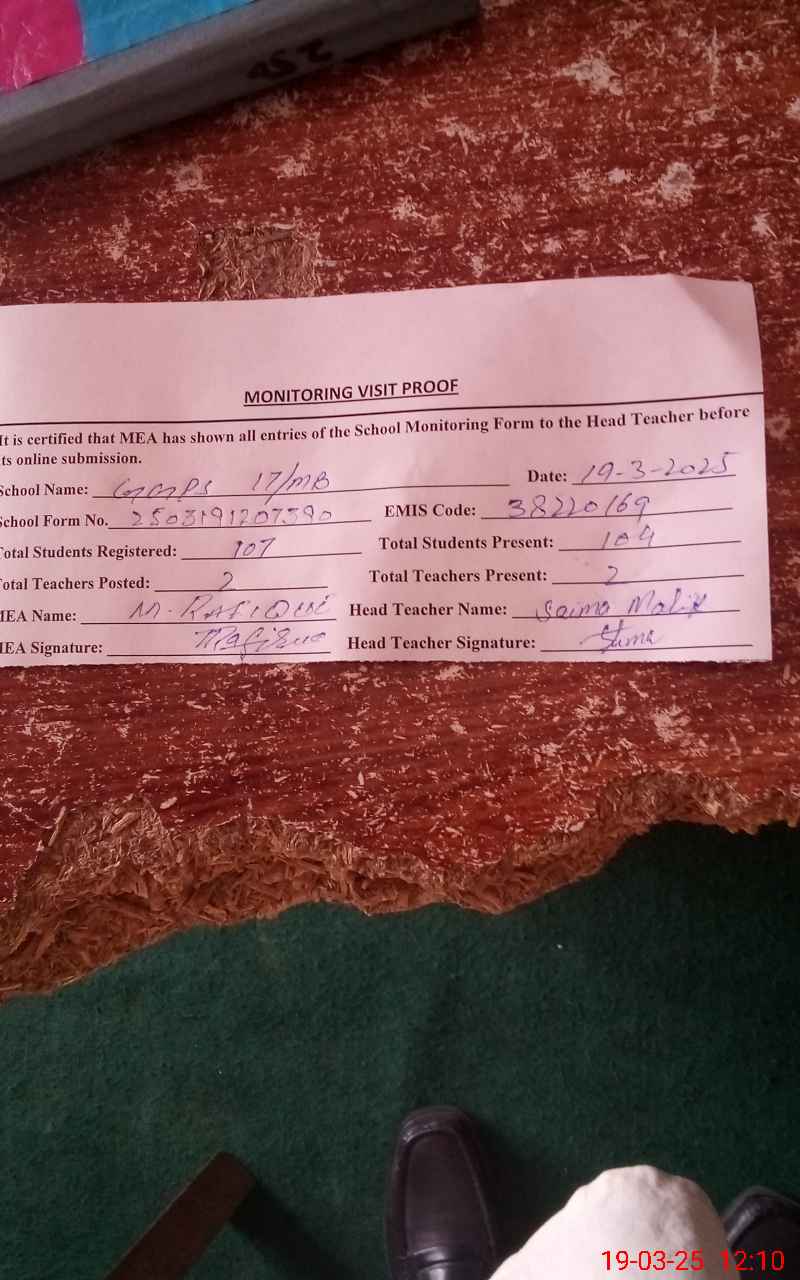 MONITORING VISIT PROOF
It is certified that MEA has shown all entries of the School Monitoring Form to the Head Teacher before
ts online submission.
School Name: GGPS 17/MB Date: 19-3-2025
School Form No. 2503191207390 EMIS Code: 38220169
Total Students Registered: 107 Total Students Present: 104
Total Teachers Posted: 2 Total Teachers Present: 2
MEA Name: M. RAFIQUE Head Teacher Name: Saima Malik
MEA Signature: Head Teacher Signature:
19-03-25 12:10